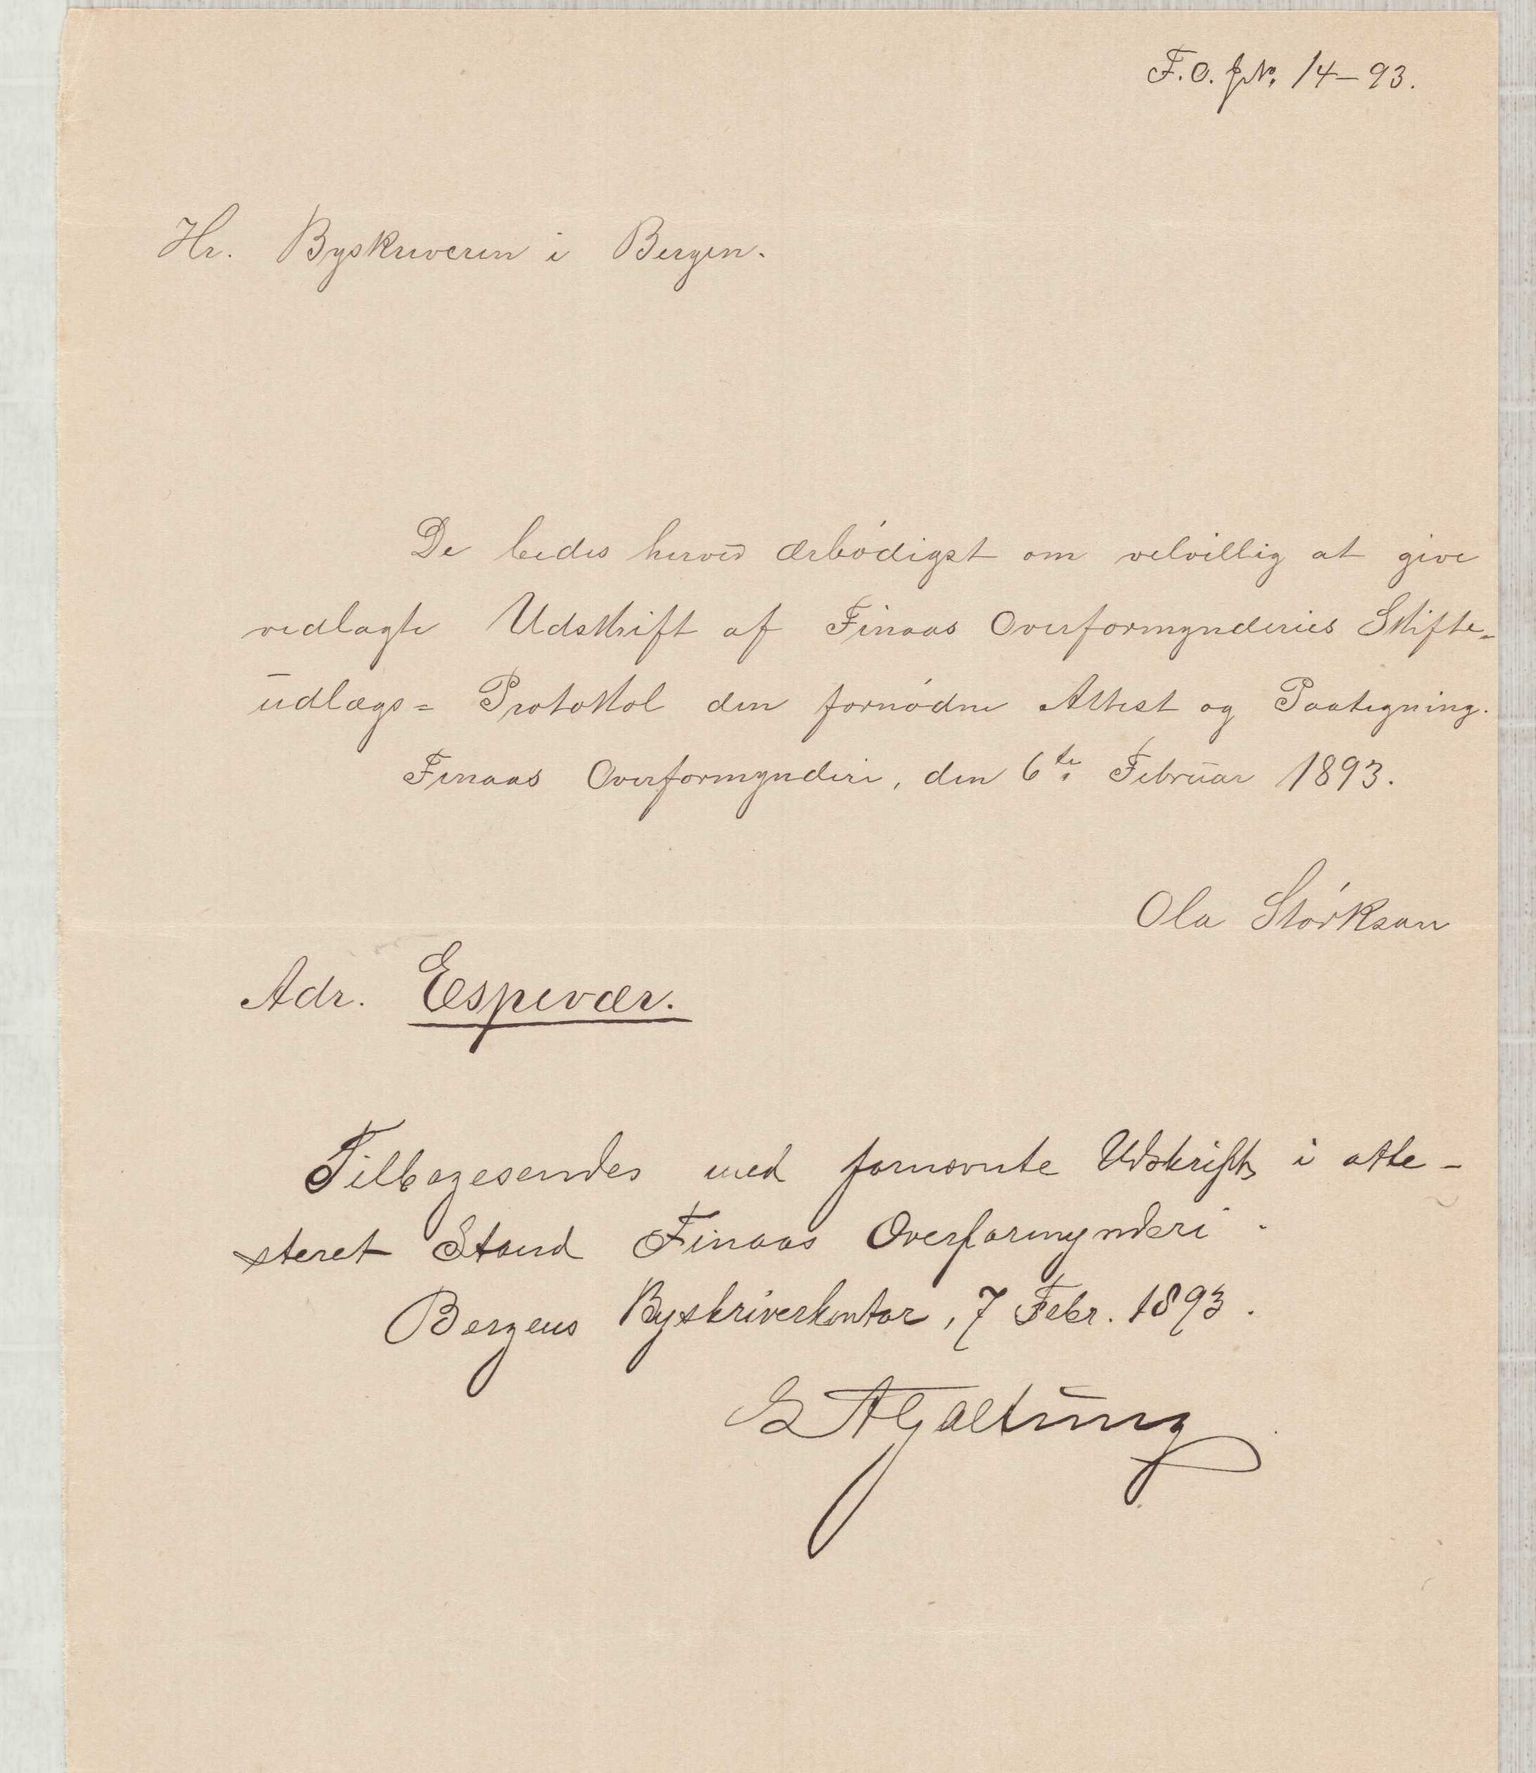 F. O. J.No. 14–93.
Hr. Byskriveren i Bergen.
De bedes herved ærbódigst om velvillig at give
vedlagte Udskrift af Finaas Overformynderies Skifte-
udlægs= Protokkol den fornódne Attest og Paategning.
Finaas Overformynderi, den 6te Februar 1893.
Ola Stórksan
Adr. Espevær.
Tilbagesendes med fornævnte Udskrift i atte-
steret Stand Finaas Overformynderi.
Bergens Byskriverkontor, 7 Febr. 1893.
Galtung